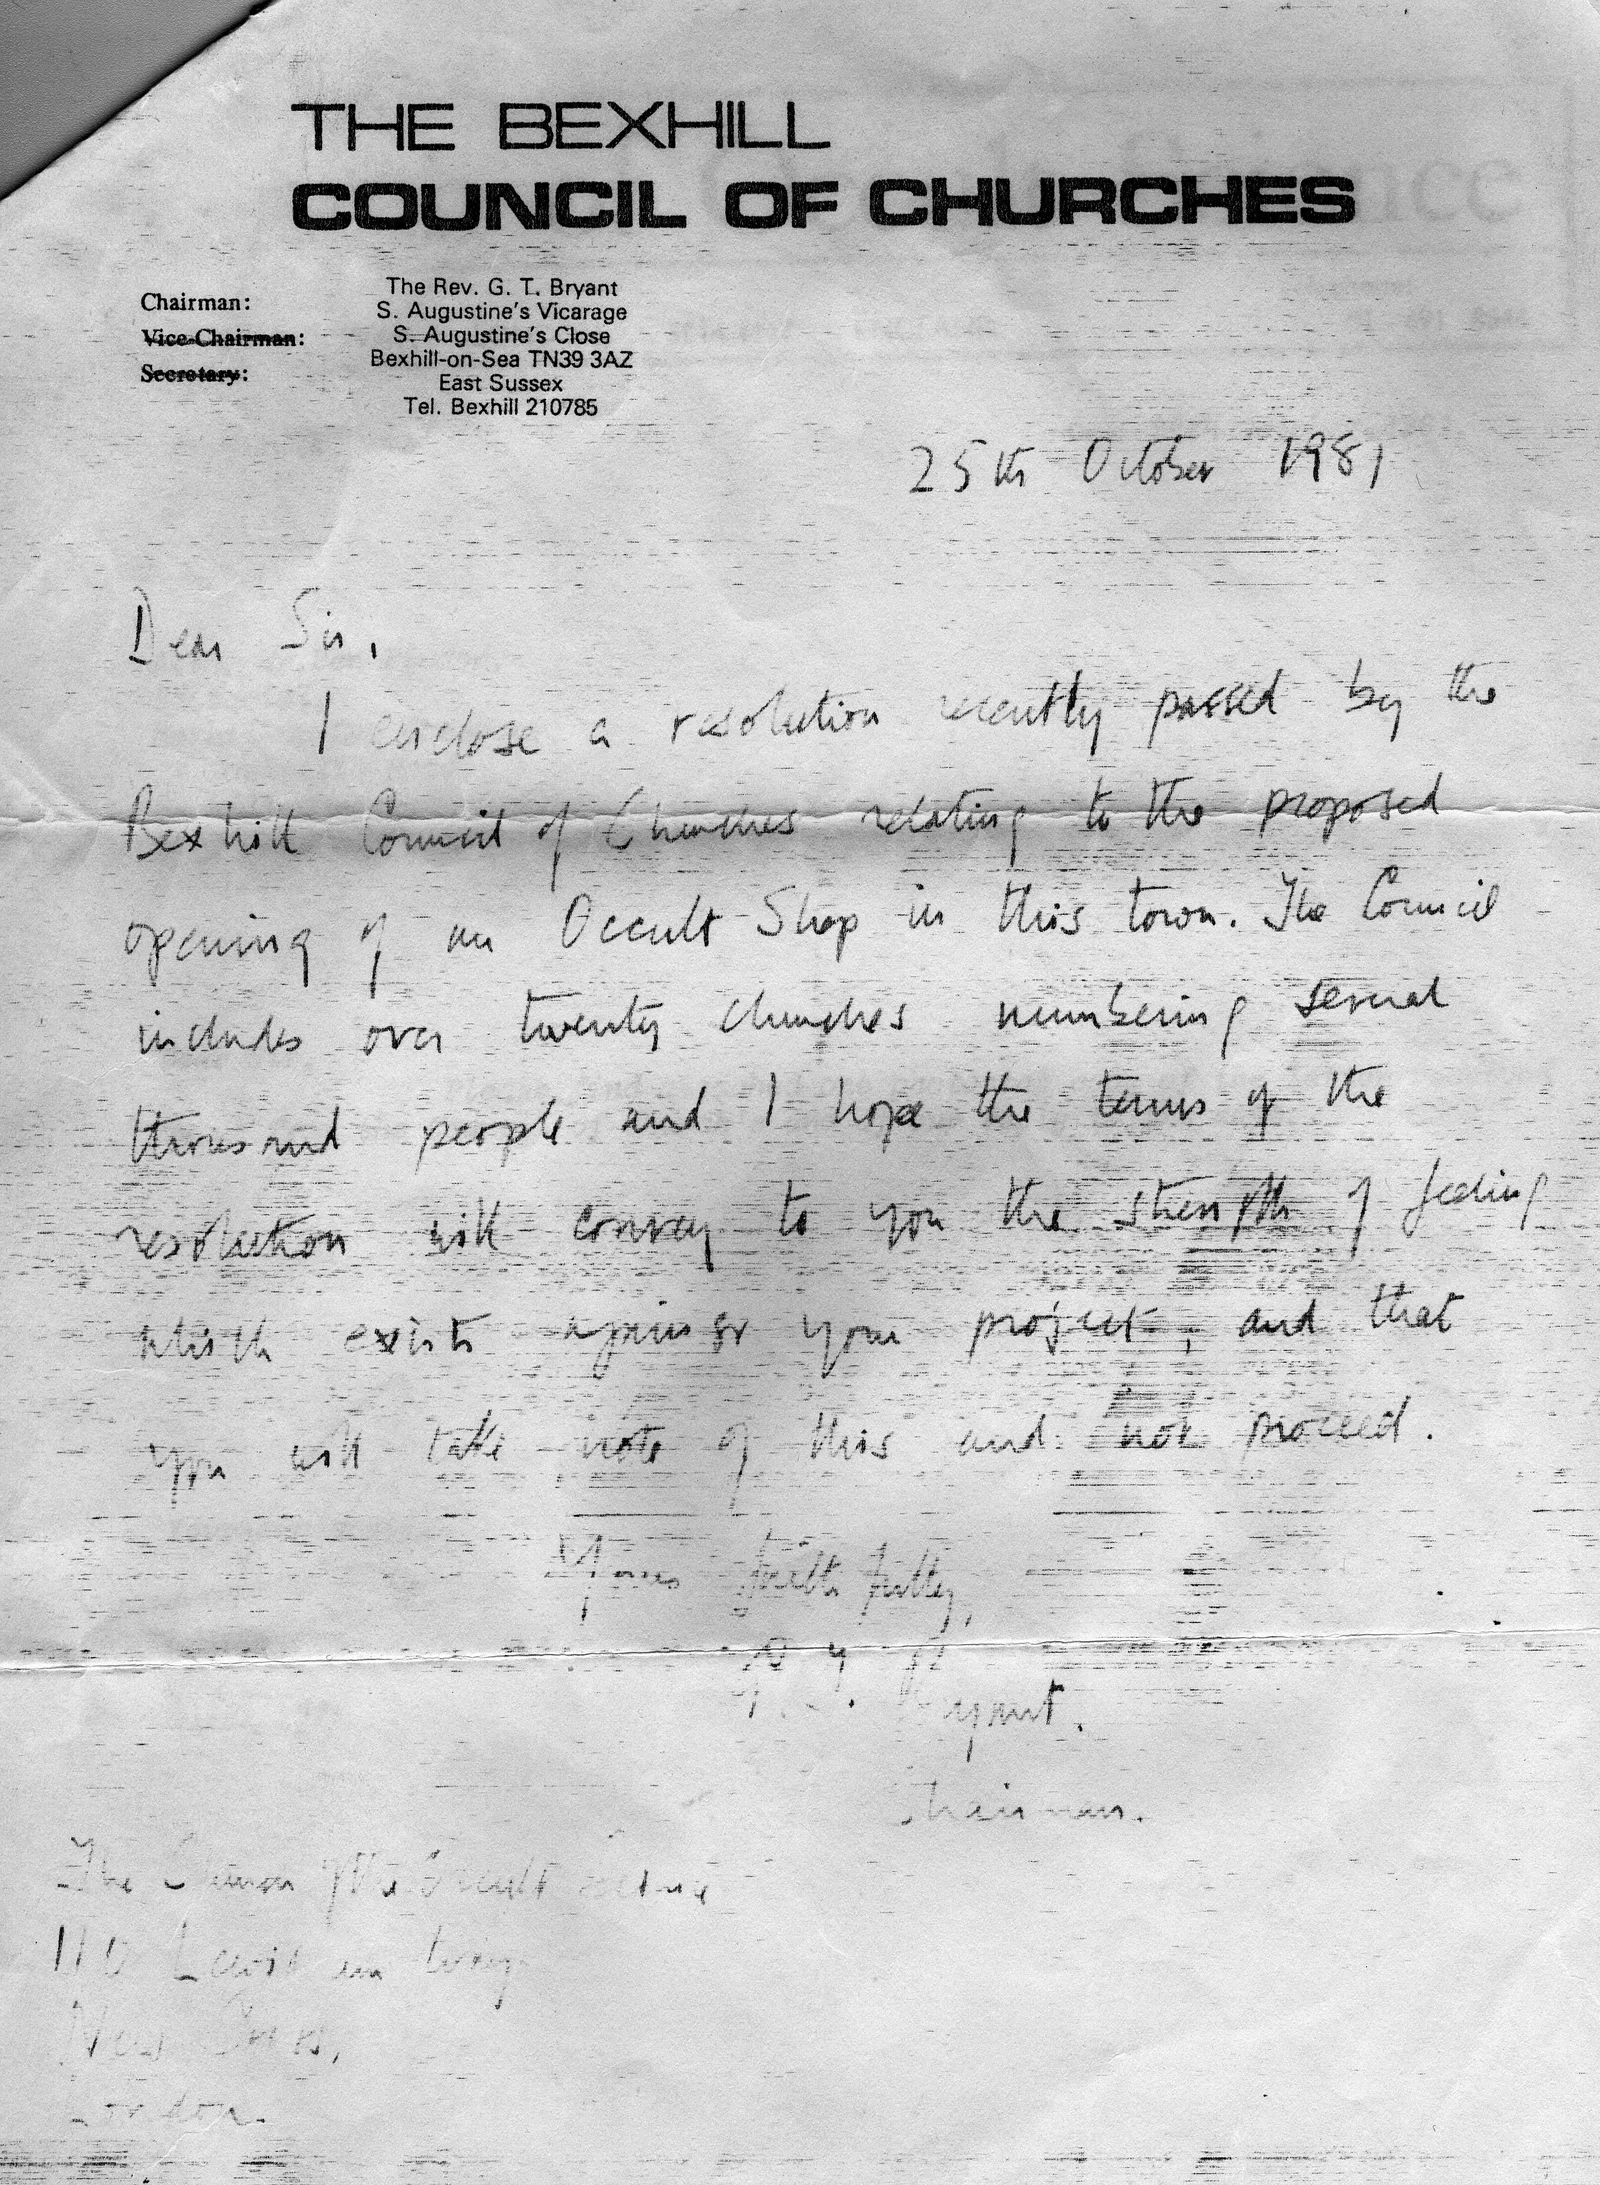 THE BEXHILL
COUNCIL OF CHURCHES
Chairman:
Vice-Chairman:
Secretary:
The Rev. G. T. Bryant
S. Augustine's Vicarage
S. Augustine's Close
Bexhill-on-Sea TN39 3AZ
East Sussex
Tel. Bexhill 210785
25th October 1981
Dear Sir,
I enclose a resolution recently passed by the
Bexhill Council of Churches relating to the proposed
opening of an Occult Shop in this town. The Council
includes over twenty churches numbering several
thousand people and I hope the terms of the
resolution will convey to you the strength of feeling
which exists against your project, and that
you will take note of this and not proceed.
Yours faithfully,
G. T. Bryant.
Chairman.
The of the Occult
110 Lewisham Way
New Cross,
London.